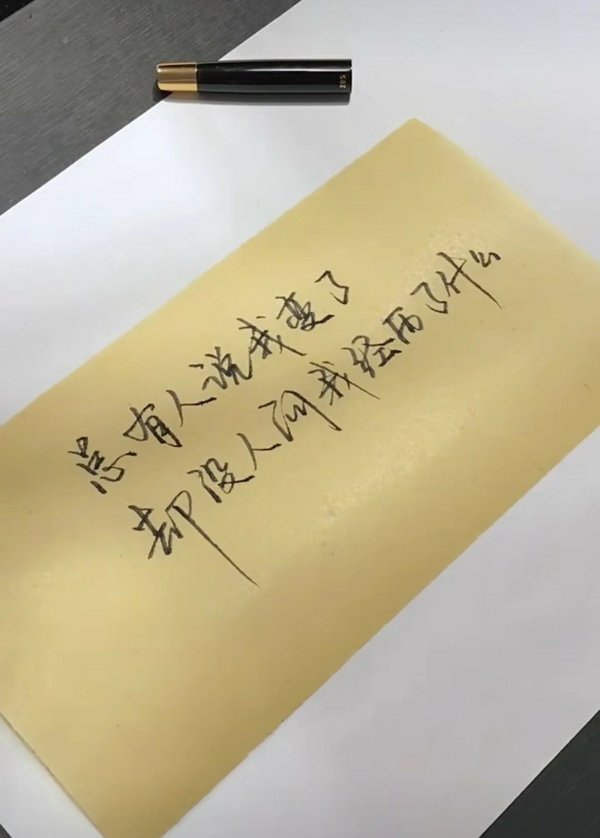 总有人说我变了
却没人问我经历了什么
285